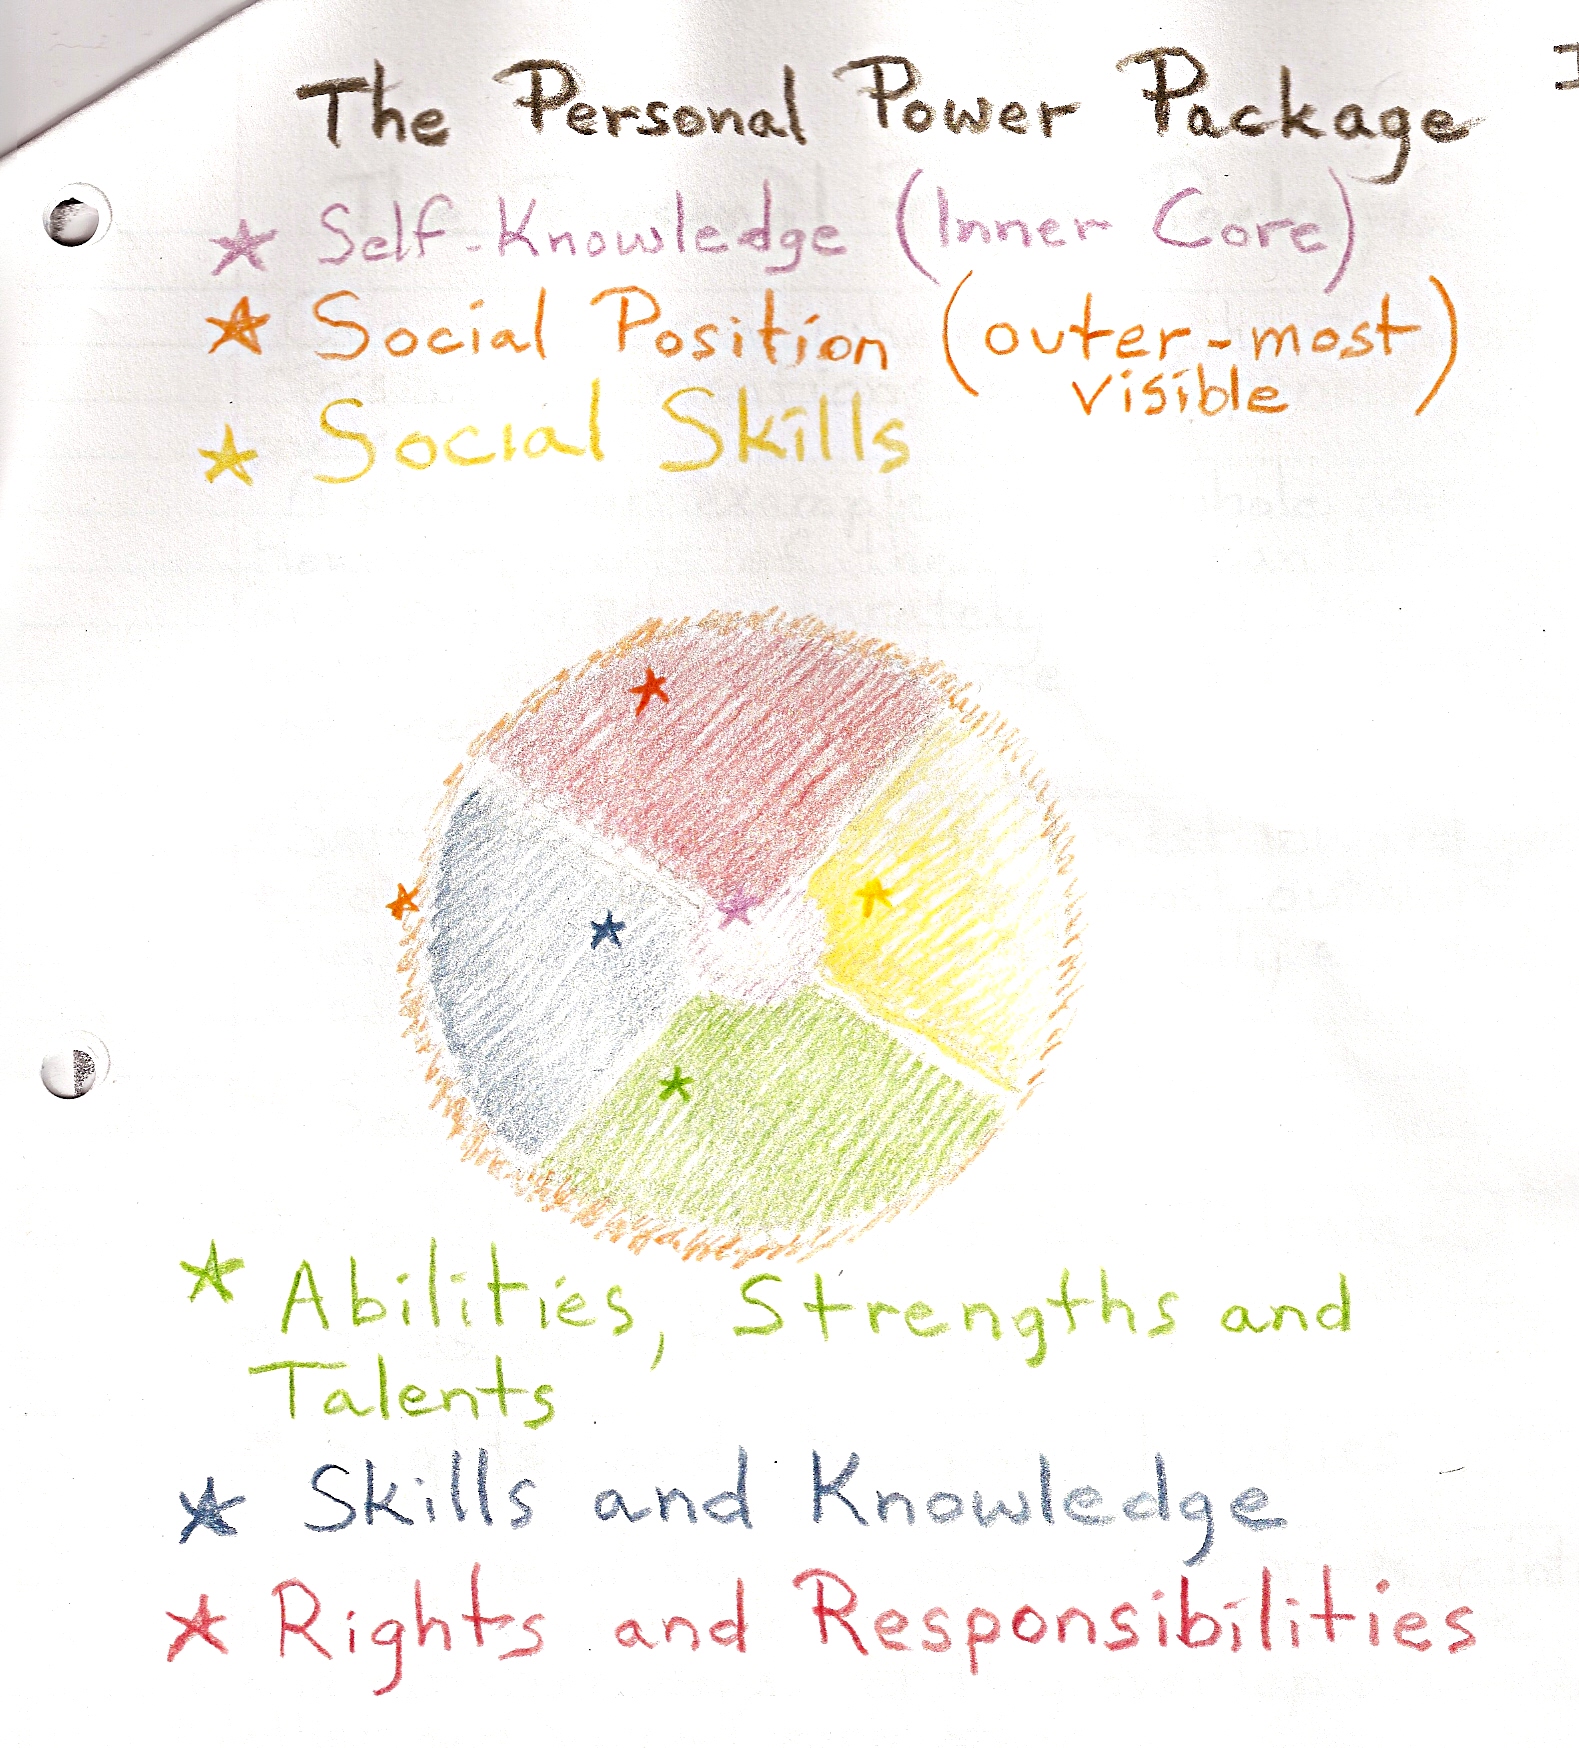 The Personal Power Package
★ Self-Knowledge (Inner Core)
★ Social Position (outer-most
visible)
★ Social Skills
★ Abilities, Strengths and
Talents
★ Skills and Knowledge
★ Rights and Responsibilities